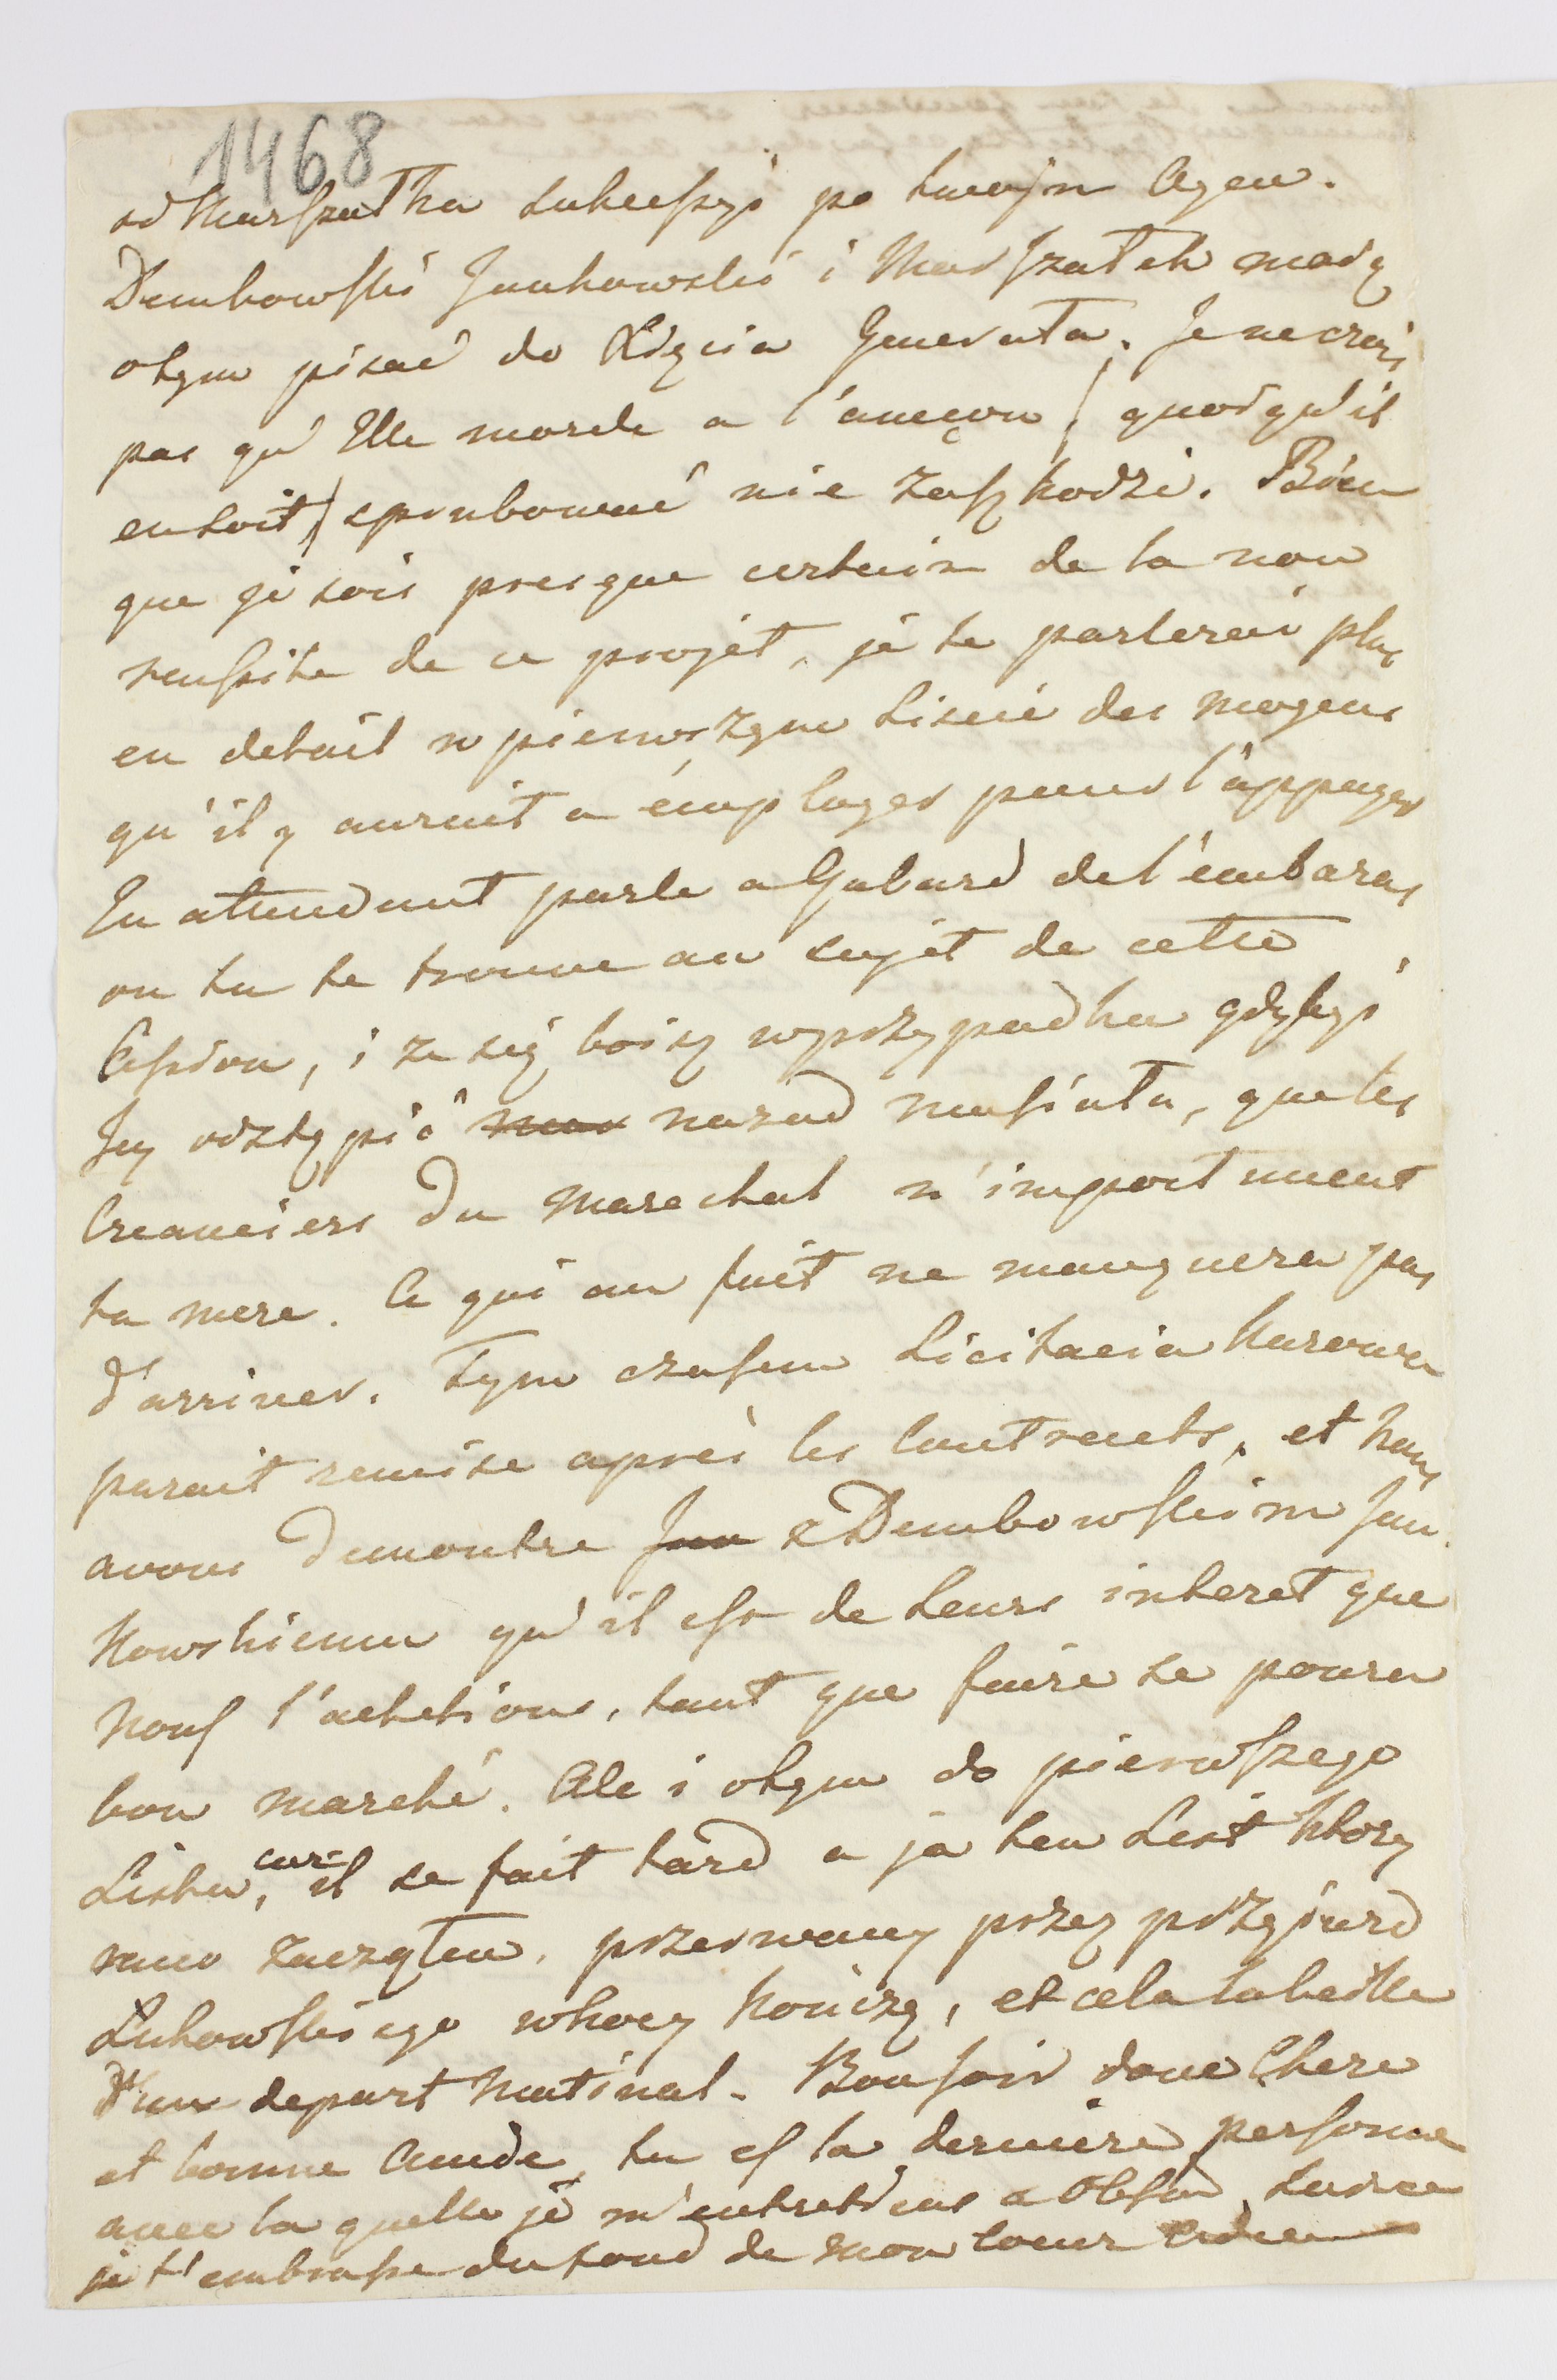 1468
od Marszatka sukcessyi po twojm Oycu.
Dembowski Junkowski i Marszatek mają
otym pisać do Xięcia Generata. Je ne crois
pas qu'Elle morde a l'ameçon / quoiqu'il
en soit / sprubować nie zaszkodzi. Bien
que je sois presque certain de la non
reussite de ce projet, je te parlerai plus
en detail w pierwszym Liscie des moyens
qu'il y aurait a employer pour l'appuyer
En attendant parle a Gabard de l'embaras
ou tu te trouve au sujet de cette
Cession, i ze się boisz wprzypadku gdybyś
Jey odstąpić nazad musiata, que les
Creanciers du Marechal n'importunent
ta mere. Ce qui au fait ne manquera pas
d'arriver. Tym czasem Licitacia
parait remise après les Contracts, et nous
avons demontre Dembowskim Jun
kowskiemu qu'il est de leurs interet que
nous l'achetions, tant que faire se poura
bon marché. Ale i otym do pierwszego
Listu, car il se fait tard a ja ten List ktory
rano zaczątem, przerwany przez przyjazd
Lukowskiego wnocy kończę, et cela la veille
d'un depart matinal. Bonsoir donc Chere
et bonne amie, tu es la derniere personne
avec la quelle je m'entretiens a
je t'embrasse du fond de mon coeur